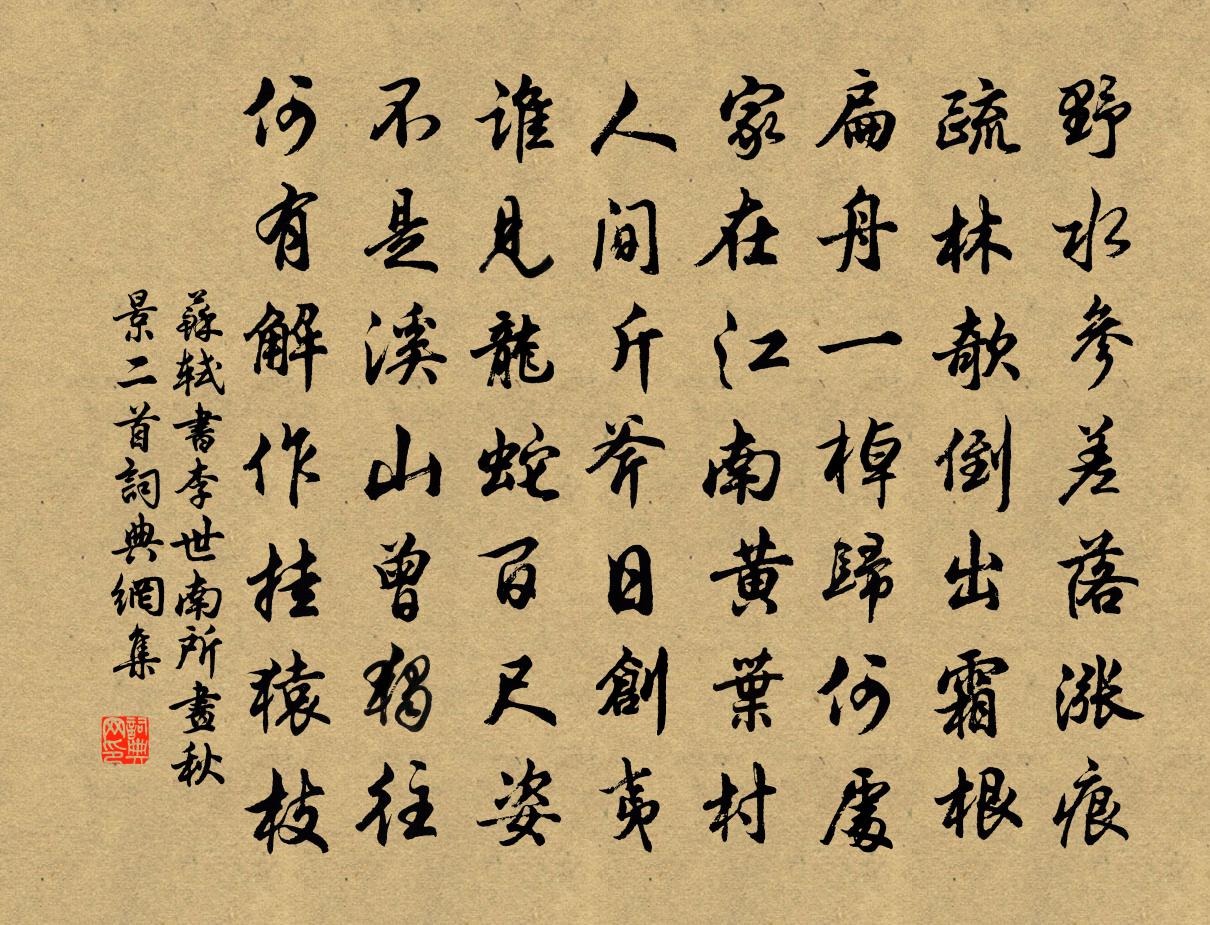 野水參差落漲痕
疏林欹倒出霜根
扁舟一棹歸何處
家在江南黃葉村
人間斤斧日創夷
誰見龍蛇百尺姿
不是溪山曾獨往
何有解作挂猿枝
蘇軾書李世南所畫秋
景二首詞典網集
詞典网印